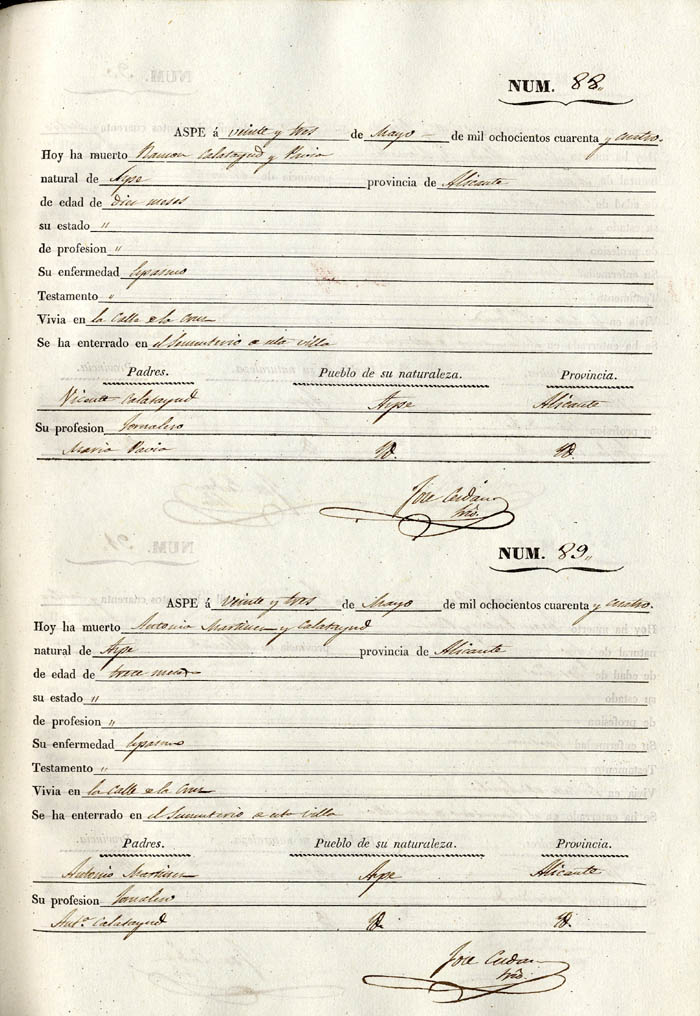 NUM. 88.
ASPE á veinte y tres de Mayo de mil ochocientos cuarenta y cuatro.
Hoy ha muerto Ramon Calatayud y Pavia
natural de Aspe provincia de Alicante
de edad de diez meses
su estado "
de profesion "
Su enfermedad Espasmo
Testamento "
Vivia en la Calle de la Cruz
Se ha enterrado en el Sementerio de esta villa
Padres. Pueblo de su naturaleza. Provincia.
Vicente Calatayud Aspe Alicante
Su profesion Jornalero
Maria Pavia Yd. Yd.
Jose Cerdan
Srio.
NUM. 89.
ASPE á veinte y tres de Mayo de mil ochocientos cuarenta y cuatro.
Hoy ha muerto Antonio Martinez y Calatayud
natural de Aspe provincia de Alicante
de edad de trece meses
su estado "
de profesion "
Su enfermedad Espasmo
Testamento "
Vivia en la Calle de la Cruz
Se ha enterrado en el Sementerio de esta villa
Padres. Pueblo de su naturaleza. Provincia.
Antonio Martinez Aspe Alicante
Su profesion Jornalero
Antª. Calatayud Yd. Yd.
Jose Cerdan
Srio.